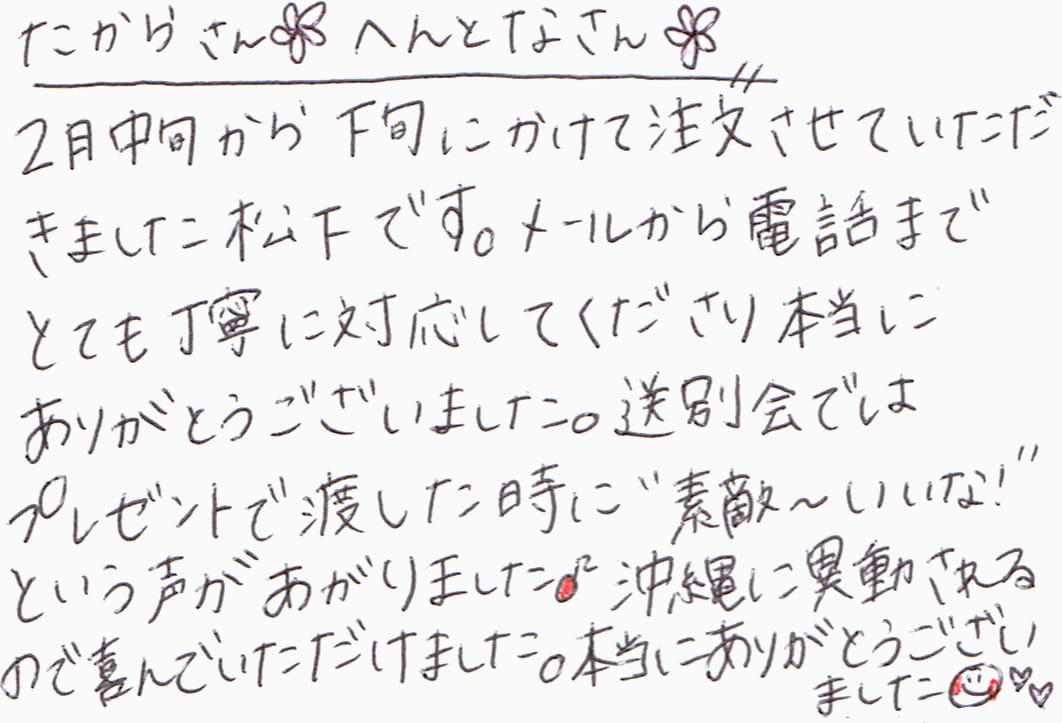 たからさん へんとなさん
2月中旬から下旬にかけて注文させていただ
きました松下です。メールから電話まで
とても丁寧に対応してくださり本当に
ありがとうございました。送別会では
プレゼントで渡した時に"素敵〜いいな!"
という声があがりました♪沖縄に異動される
ので喜んでいただけました。本当にありがとうござい
ました